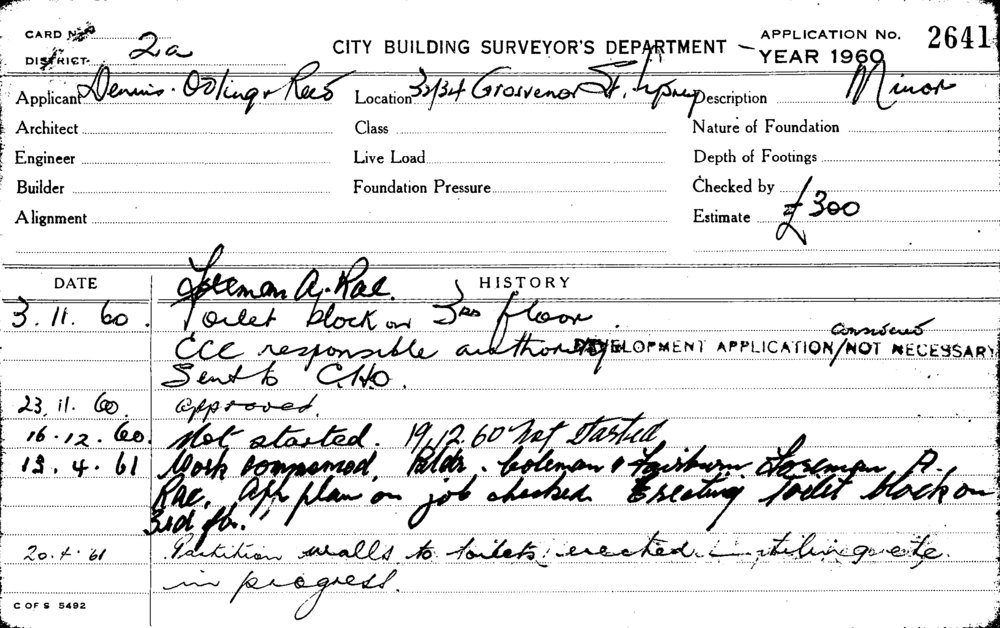 CARD No.
DISTRICT 2a
CITY BUILDING SURVEYOR'S DEPARTMENT
APPLICATION No. 2641
YEAR 1960
Applicant Dennis
Location 32/34 Grosvenor St.
Description Minor
Architect
Class
Nature of Foundation
Engineer
Live Load
Depth of Footings
Builder
Foundation Pressure
Checked by
Alignment
Estimate £300
DATE
HISTORY
Foreman A. Rae.
3.11.60. Toilet block on 3rd floor.
CCC responsible authority
DEVELOPMENT APPLICATION considered NOT NECESSARY
Sent to C.H.O.
23.11.60. approved.
16.12.60. Not started. 19.12.60 Not started
13.4.61 Work commenced. Bldr. Coleman & Fairburn Foreman A.
Rae. App plan on job checked. Erecting toilet block on
3rd flr.
20.4.61 Partition walls to toilets erected
in progress.
C OF S 5492